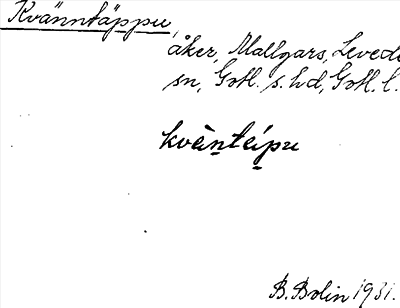 Kvänntäppu,
åker, Mallgars, Levede
sn, Gotl. s. hd, Gotl. l.
kvèntápu
B. Bolin 1931.